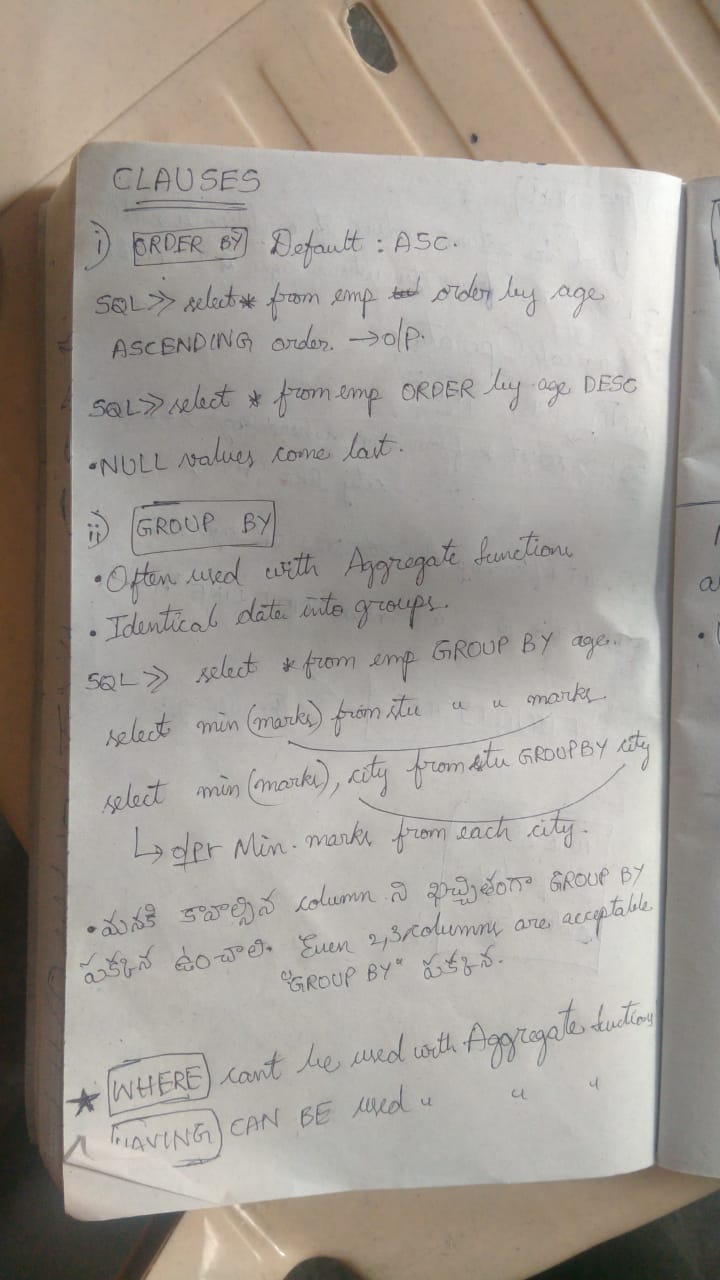 CLAUSES
i) ORDER BY Default : ASC.
SQL>> select * from emp order by age
ASCENDING order. → o/p.
SQL>> select * from emp ORDER by age DESC
• NULL values come last.
ii) GROUP BY
• Often used with Aggregate functions
• Identical data into groups.
SQL >> select * from emp GROUP BY age.
select min (marks) from stu " " marks
select min (marks), city from stu GROUP BY city
↳ o/p: Min. marks from each city.
• మనకి కావాల్సిన column ని ఖచ్చితంగా GROUP BY
పక్కన ఉంచాలి. Even 2,3 columns are acceptable
"GROUP BY" పక్కన.
★ WHERE cant be used with Aggregate fuctions
HAVING CAN BE used " " "